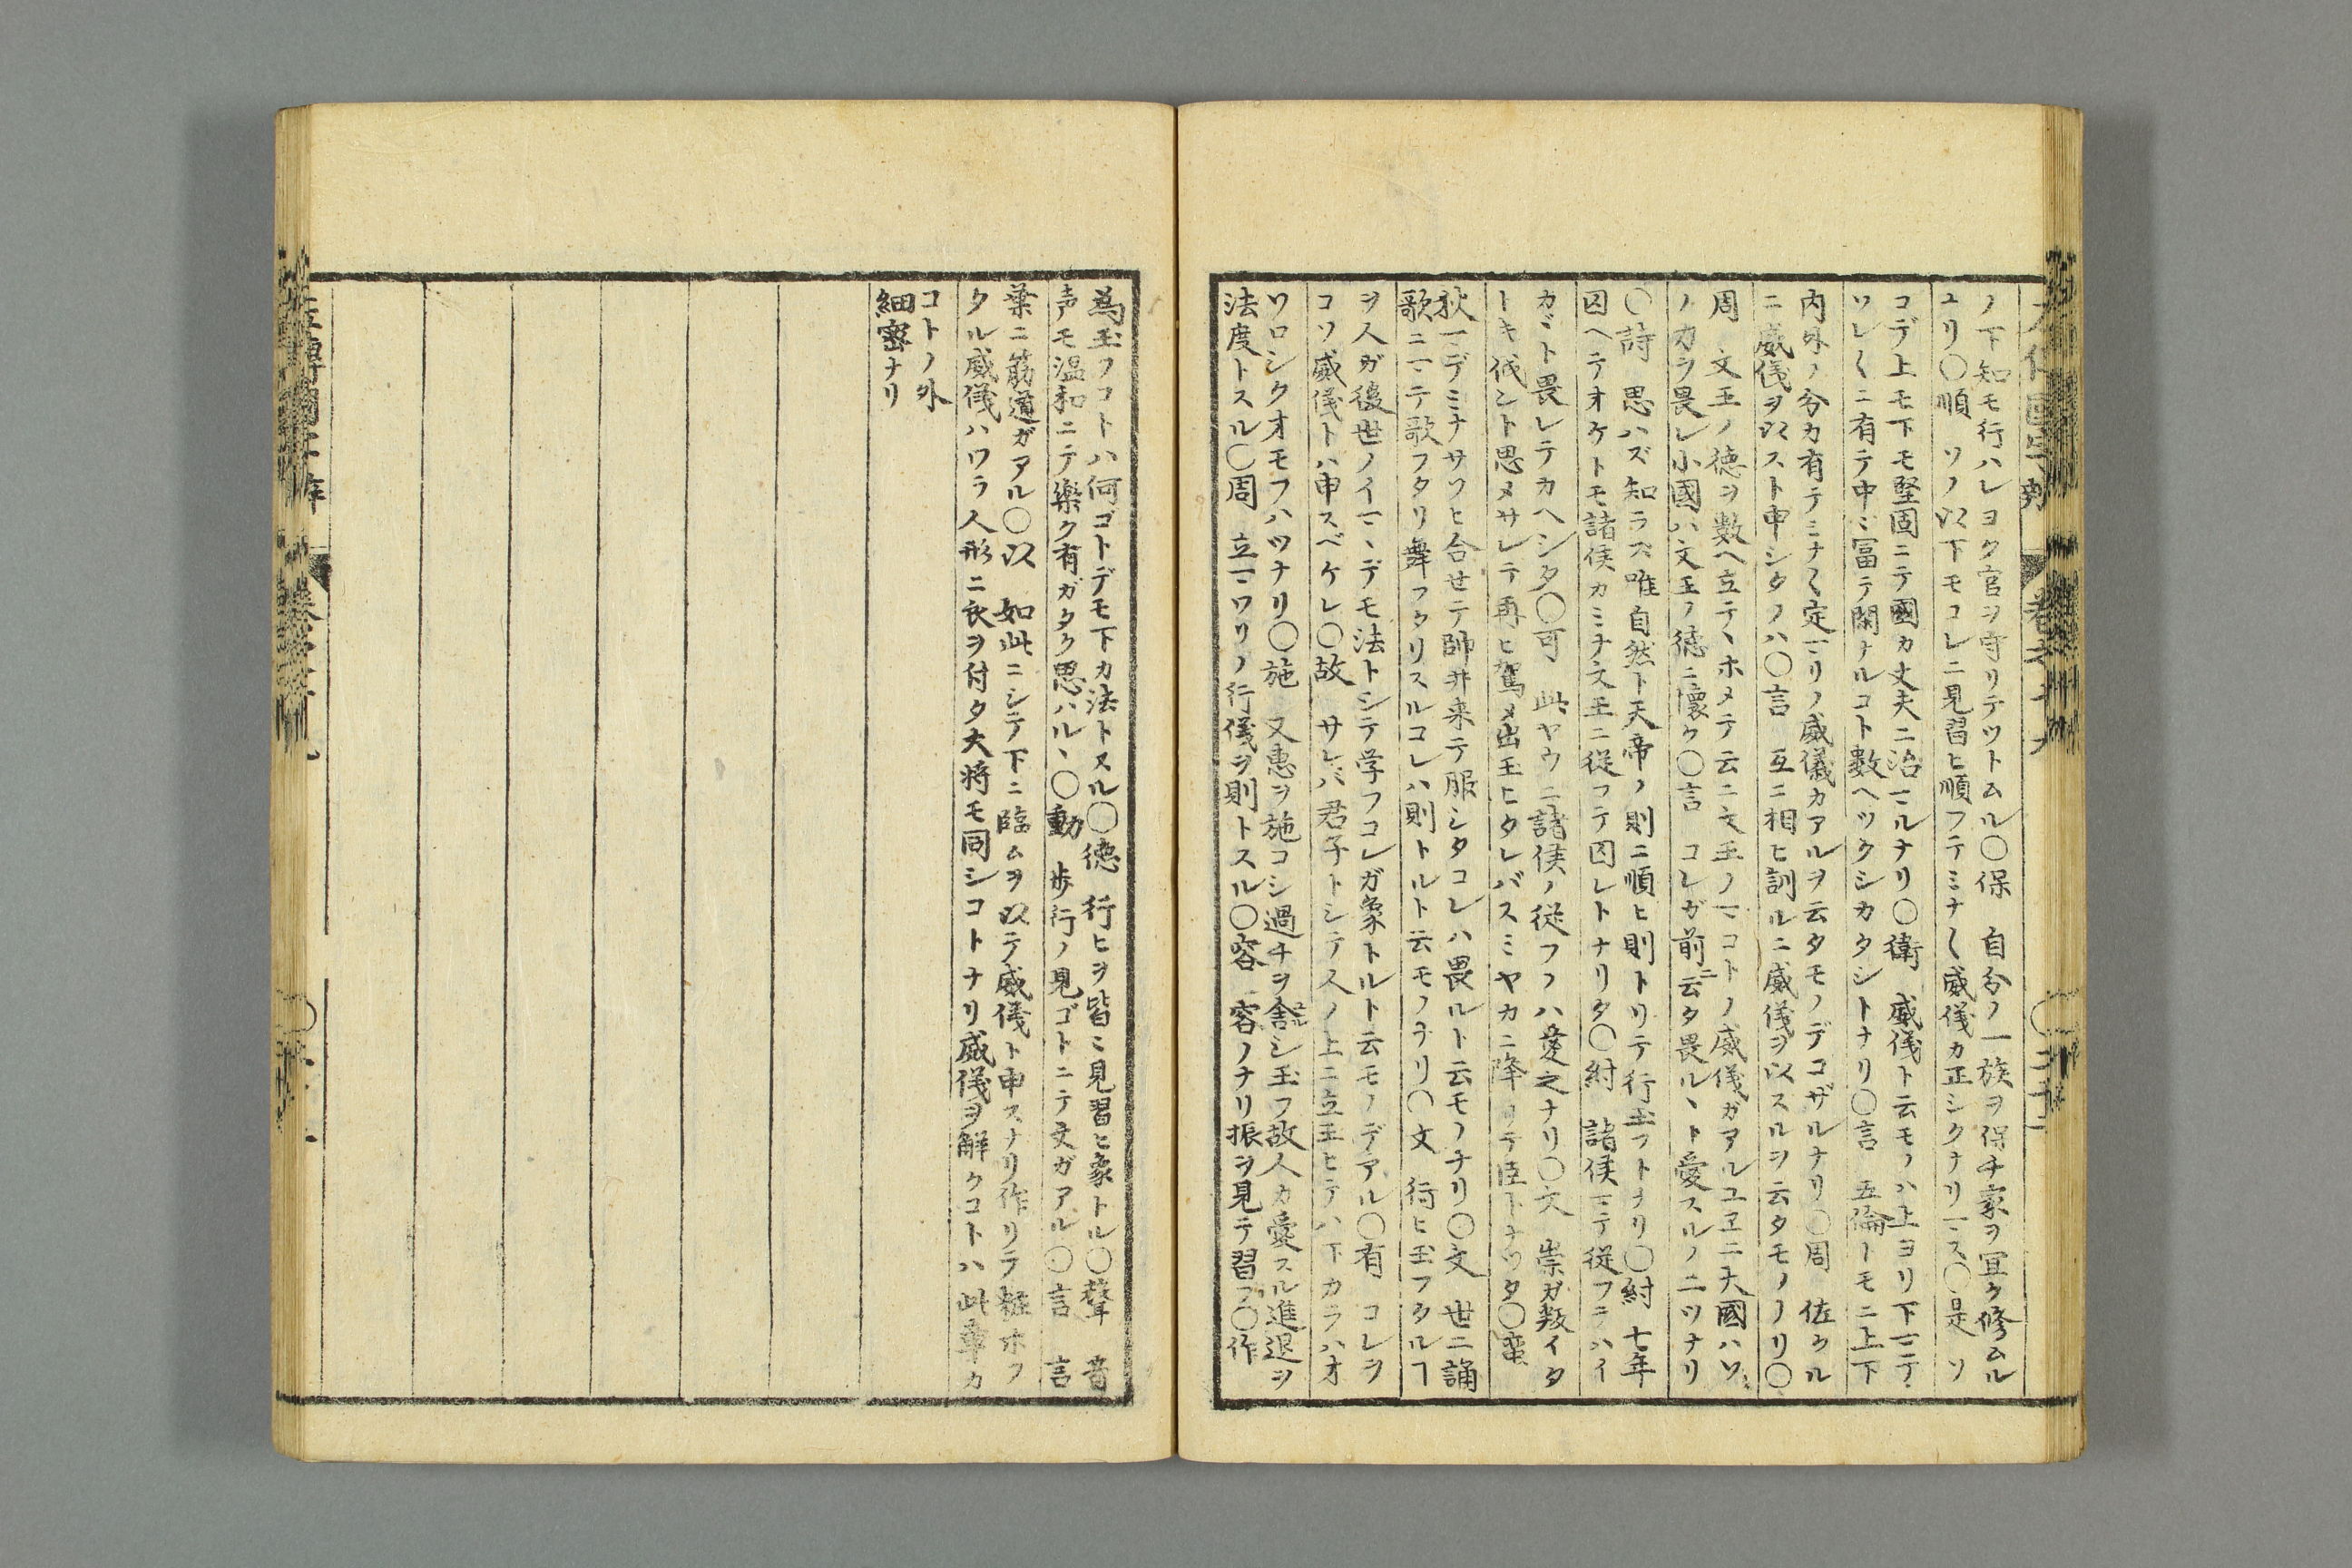 ノ下知モ行ハレヨク官ヲ守リテツトムル〇保　自分ノ一族ヲ保チ家ヲ宜ク修ムル
ユリ〇順　ソノ以下モコレニ見習ヒ順フテミナ〱威儀カ正シクナリマス〇是　ソ
コデ上モ下モ堅固ニテ國カ丈夫ニ治マルナリ〇衛　威儀ト云モノハ上ヨリ下マデ
ソレ〱ニ有テ中ミ冨テ閑ナルコト數ヘツクシカタシトナリ〇言　五倫トモニ上下
内外ノ分カ有テミナ〱定マリノ威儀カアルヲ云タモノデコザルナリ〇周　佐クル
ニ威儀ヲ以スト申シタノハ〇言　互ニ相ヒ訓ルニ威儀ヲ以スルヲ云タモノナリ〇
周　文王ノ徳ヲ數ヘ立テヽホメテ云ニ文王ノマコトノ威儀ガアルユヱニ大國ハソ
ノ力ヲ畏レ小國ハ文王ノ徳ニ懷ク〇言　コレガ前ニ云タ畏ルヽト愛スルノ二ツナリ
〇詩　思ハズ知ラズ唯自然ト天帝ノ則ニ順ヒ則トリテ行玉フトナリ〇紂　七年
囚ヘテオケトモ諸侯カミナ文王ニ従フテ囚レトナリタ〇紂　諸侯マテ従フニハイ
カヾト畏レテカヘシタ〇可　此ヤウニ諸侯ノ従フノハ愛之ナリ〇文　崇ガ叛イタ
トキ伐ント思メサレテ再ヒ駕メ出玉ヒタレバスミヤカニ降リテ臣トナツタ〇蛮
狄マデミナサソヒ合せテ帥井来テ服シタコレハ畏ルト云モノナリ〇文　世ニ誦
歌ニマテ歌フタリ舞フタリスルコレハ則トルト云モノナリ〇文　行ヒ玉フタルヿ
ヲ人ガ後世ノイマヽデモ法トシテ学フコレガ象トルト云モノデアル〇有　コレヲ
コソ威儀トハ申スベケレ〇故　サレバ君子トシテ人ノ上ニ立玉ヒテハ下カラハオ
ソロシクオモフハツナリ〇施　又惠ヲ施コシ過チヲ舎シ玉フ故人カ愛スル進退ヲ
法度トスル〇周　立マワリノ行儀ヲ則トスル〇容　容ノナリ振ヲ見テ習フ〇作
為玉フコトハ何ゴトデモ下カ法トスル〇徳　行ヒヲ皆ミ見習ヒ象トル〇聲　音
声モ温和ニテ樂ク有ガタク思ハルヽ〇動　歩行ノ見ゴトニテ文ガアル〇言　言
葉ニ筋道ガアル〇以　如此ニシテ下ニ臨ムヲ以テ威儀ト申スナリ作リテ粧ホフ
タル威儀ハワラ人形ニ衣ヲ付タ大将モ同シコトナリ威儀ヲ解クコトハ此章カ
コトノ外
細密ナリ